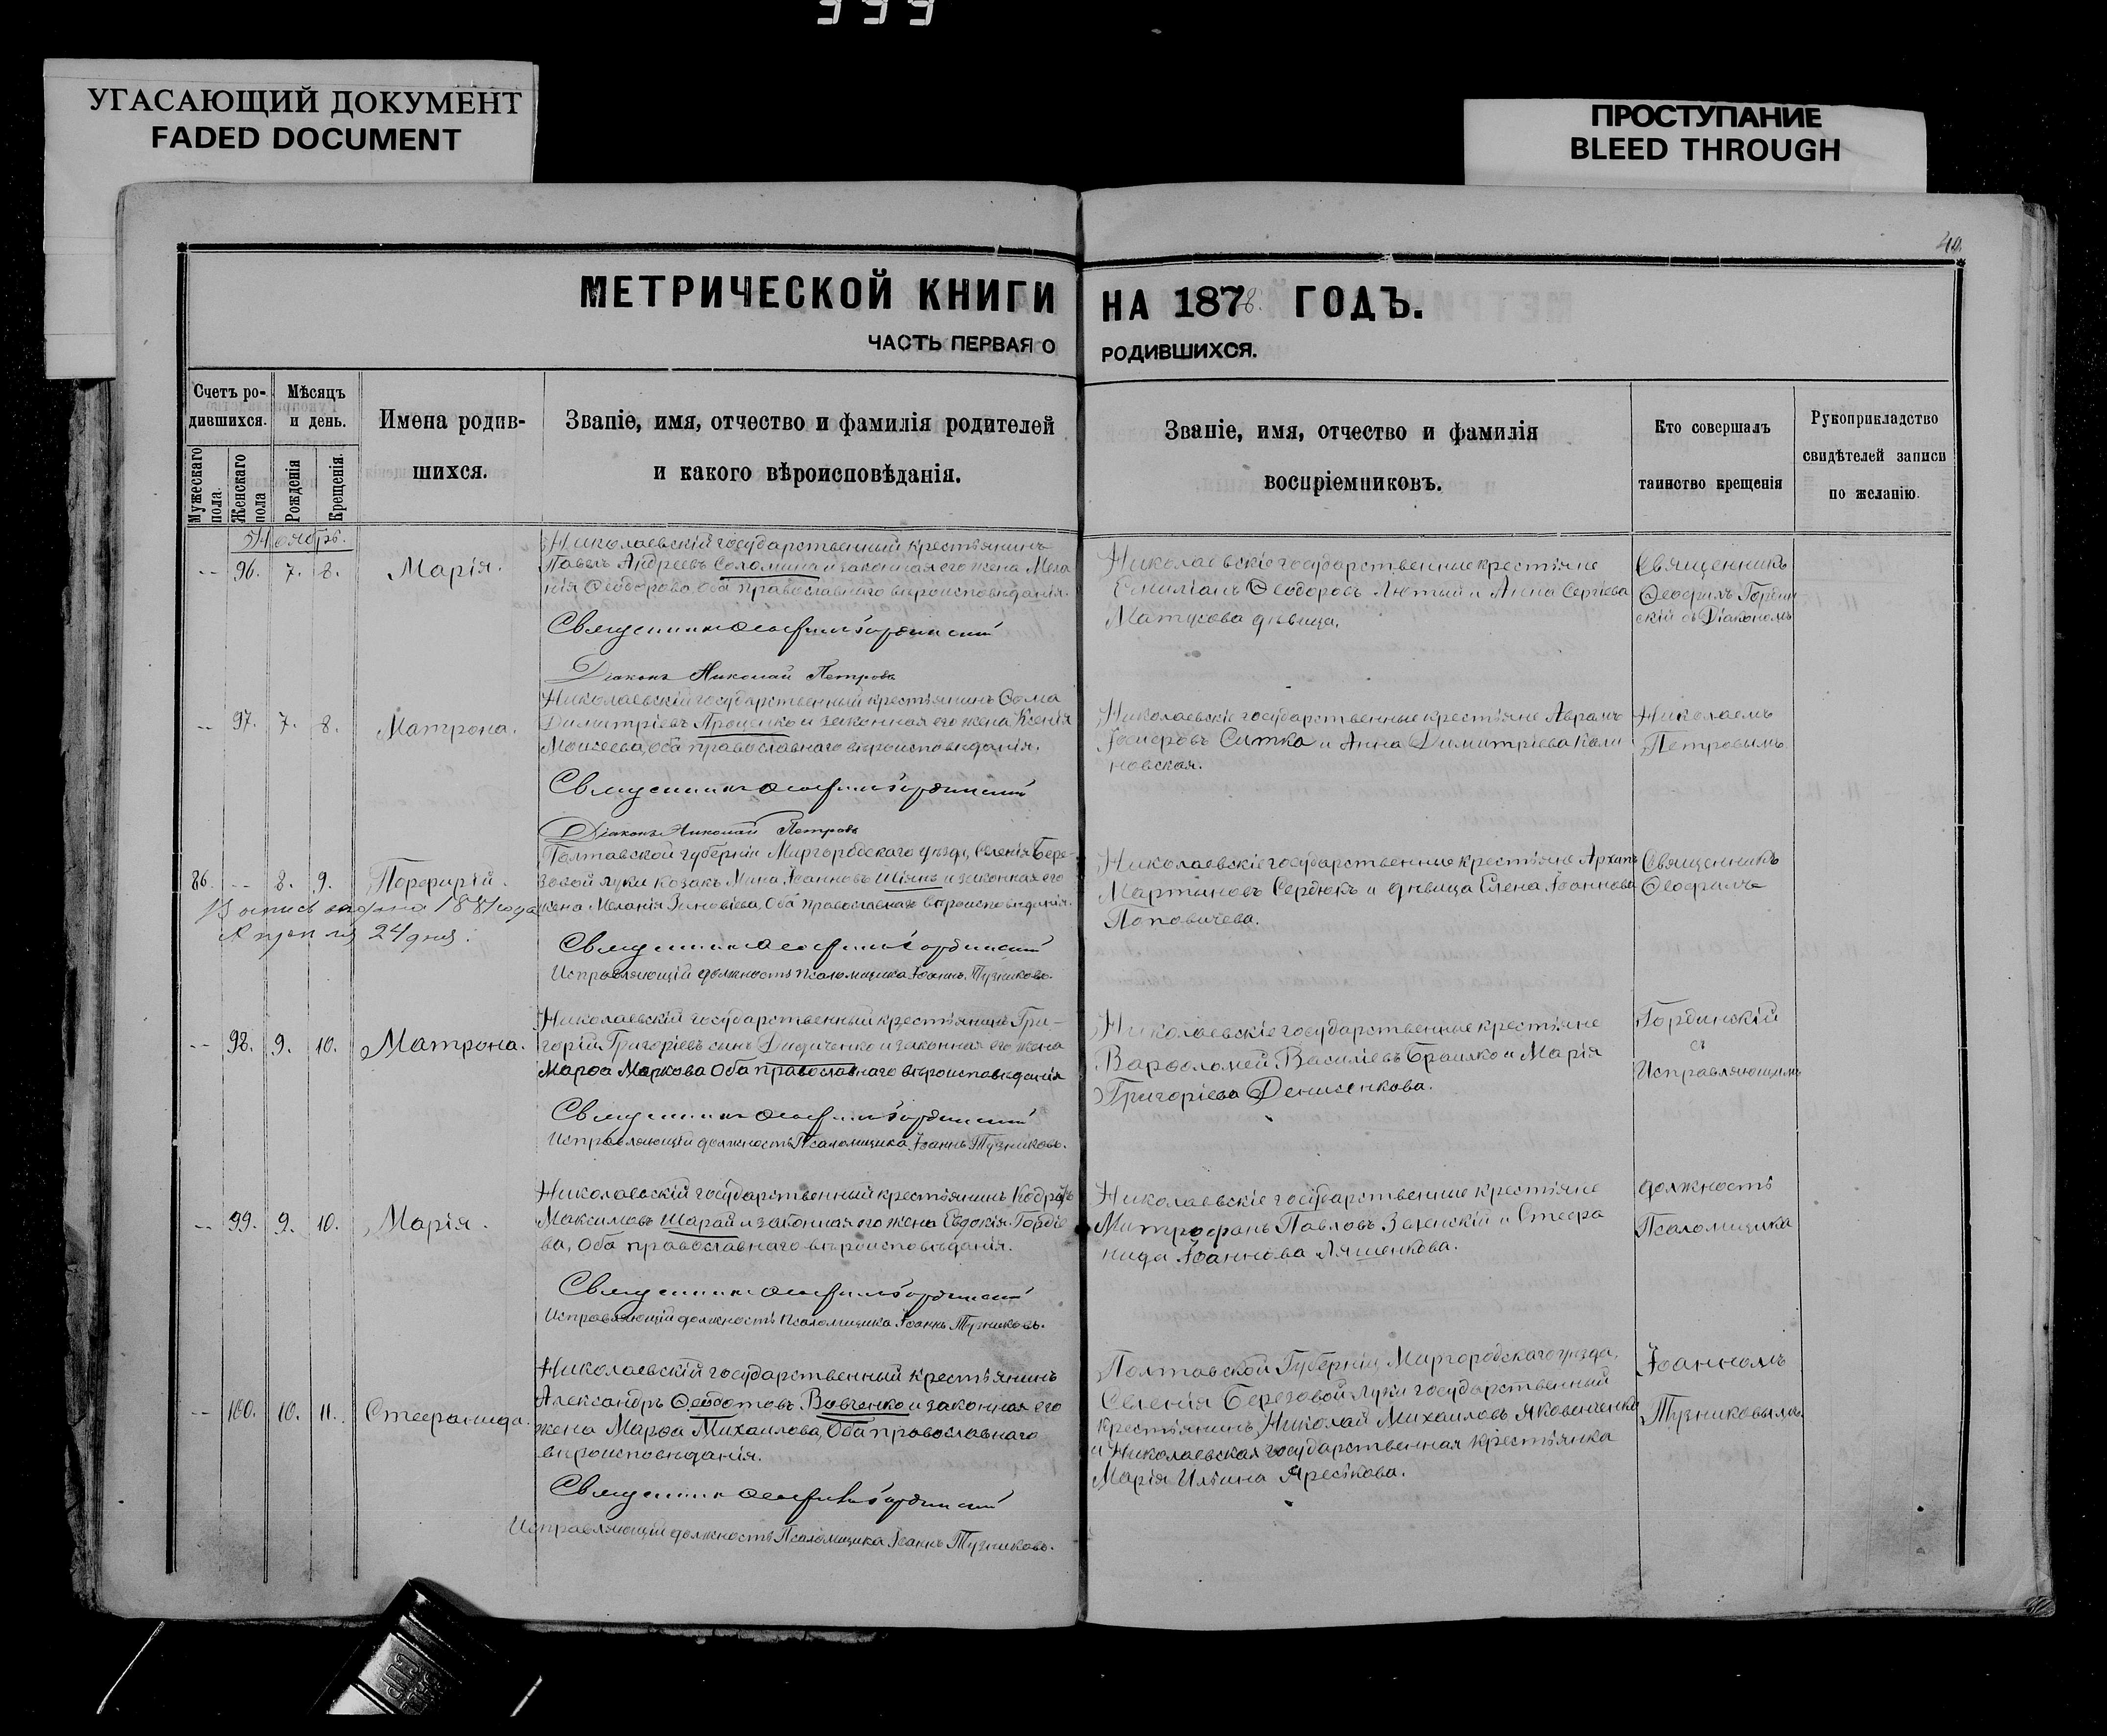 УГАСАЮЩИЙ ДОКУМЕНТ
FADED DOCUMENT
ПРОСТУПАНИЕ
BLEED THROUGH
МЕТРИЧЕСКОЙ КНИГИ НА 1878. ГОДЪ.
ЧАСТЬ ПЕРВАЯ О РОДИВШИХСЯ.
Счетъ ро-
дившихся.
Мужескаго пола.
Женскаго пола
Мѣсяцъ
и день.
Рожденія
Крещенія.
Имена родив-
шихся.
Званіе, имя, отчество и фамилія родителей
и какого вѣроисповѣданія.
Званіе, имя, отчество и фамилія
воспріемниковъ.
Кто совершалъ
таинство крещенія
Рукоприкладство
свидѣтелей записи
по желанію.
Ноябрь.
-- 96. 7. 8. Марія.
Николаевскій государственный крестьянинъ
Павелъ Андреевъ Соломина и законная его жена Мела
нія Ѳеодорова, Оба православнаго вѣроисповѣданія.
Священникъ Ѳеофилъ Гординскій
Діаконъ Николай Петровъ
Николаевскіе государственные крестьяне
Емиліанъ Ѳеодоровъ Лютый и Анна Сергіева
дѣвица.
-- 97. 7. 8. Матрона.
Николаевскій государственный крестьянинъ Ѳома
Димитріевъ Проценко и законная его жена Ксенія
Моисеева, оба православнаго вѣроисповѣданія.
Священникъ Ѳеофилъ Гординскій
Діаконъ Николай Петровъ
Николаевскіе государственные крестьяне Аврамъ
Ситка и Анна Димитріева Кали
новская.
86. -- 8. 9. Порфирій.
24 дня.
Полтавской губерніи Миргородскаго уѣзда, Селенія Бере-
зовой луки козакъ Мина Іоанновъ Шіянъ и законная его
жена Меланія Зиновіева, Оба православнаго вѣроисповѣданія.
Священникъ Ѳеофилъ Гординскій
Исправляющій должность псаломщика Іоаннъ Тузниковъ.
Николаевскіе государственные крестьяне Архипъ
Мартиновъ Сердюкъ и дѣвица Елена Іоаннова
Поповичева.
-- 98. 9. 10. Матрона.
Николаевскій государственный крестьянинъ Гри-
горій Григоріевъ сынъ Дидиченко и законная его жена
Марѳа Маркова Оба православнаго вѣроисповѣданія
Священникъ Ѳеофилъ Гординскій
Исправляющій должность Псаломщика Іоаннъ Тузниковъ.
Николаевскіе государственные крестьяне
Варѳоломей Василіевъ Браилко и Марія
Григоріева Денисенкова.
-- 99. 9. 10. Марія.
Николаевскій государственный крестьянинъ Кодратъ
Максимовъ Шарай и законная его жена Евдокія Гордіе
ва, Оба православнаго вѣроисповѣданія.
Священникъ Ѳеофилъ Гординскій
Исправляющій должность Псаломщика Іоаннъ Тузниковъ.
Николаевскіе государственные крестьяне
Митрофанъ Павловъ и Стефа
нида Іоаннова Ляшенкова.
-- 100. 10. 11. Стефанида.
Николаевскій государственный крестьянинъ
Александръ Ѳеодотовъ Вовченко и законная его
жена Марѳа Михаилова, Оба православнаго
вѣроисповѣданія.
Священникъ Ѳеофилъ Гординскій
Исправляющій должность Псаломщика Іоаннъ Тузниковъ.
Полтавской Губерніи, Миргородскаго уѣзда,
Селенія Березовой луки государственный
крестьянинъ, Николай Михаиловъ Яковенченко
и Николаевская государственная крестьянка
Марія Ильина Яреськова.
Священникъ
Ѳеофилъ Гордин
скій съ Діакономъ
Николаемъ
Петровымъ
Священникъ
Ѳеофилъ
Гординскій
съ
Исправляющимъ
должность
Псаломщика
Іоанномъ
Тузниковымъ.